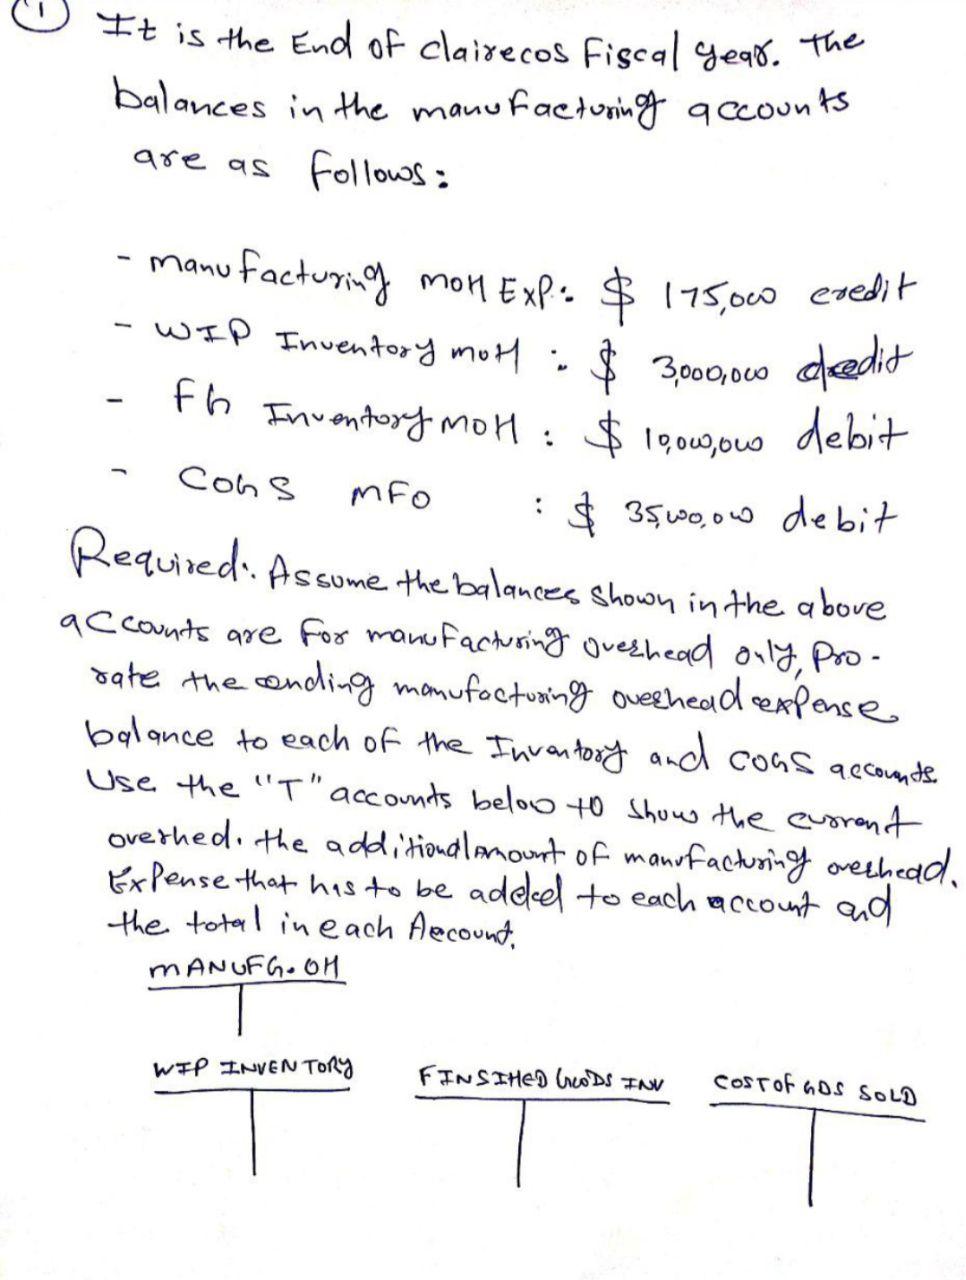 1
It is the End of clairecos Fiscal year. The
balances in the manufacturing accounts
are as follows:
- manufacturing MOH EXP: $ 175,000 credit
- WIP Inventory MOH : $ 3,000,000 dredit
- FG Inventory MOH : $ 10,000,000 debit
- COGS MFO : $ 35,000,000 debit
Required: Assume the balances shown in the above
accounts are for manufacturing overhead only, Pro-
rate the ending manufacturing overhead expense
balance to each of the Inventory and COGS accounts
Use the "T" accounts below to show the current
overhed. the additional amount of manufacturing overhead.
Expense that has to be added to each account and
the total in each Account.
MANUFG. OH
WIP INVENTORY
FINSIHED GOODS INV
COST OF GDS SOLD